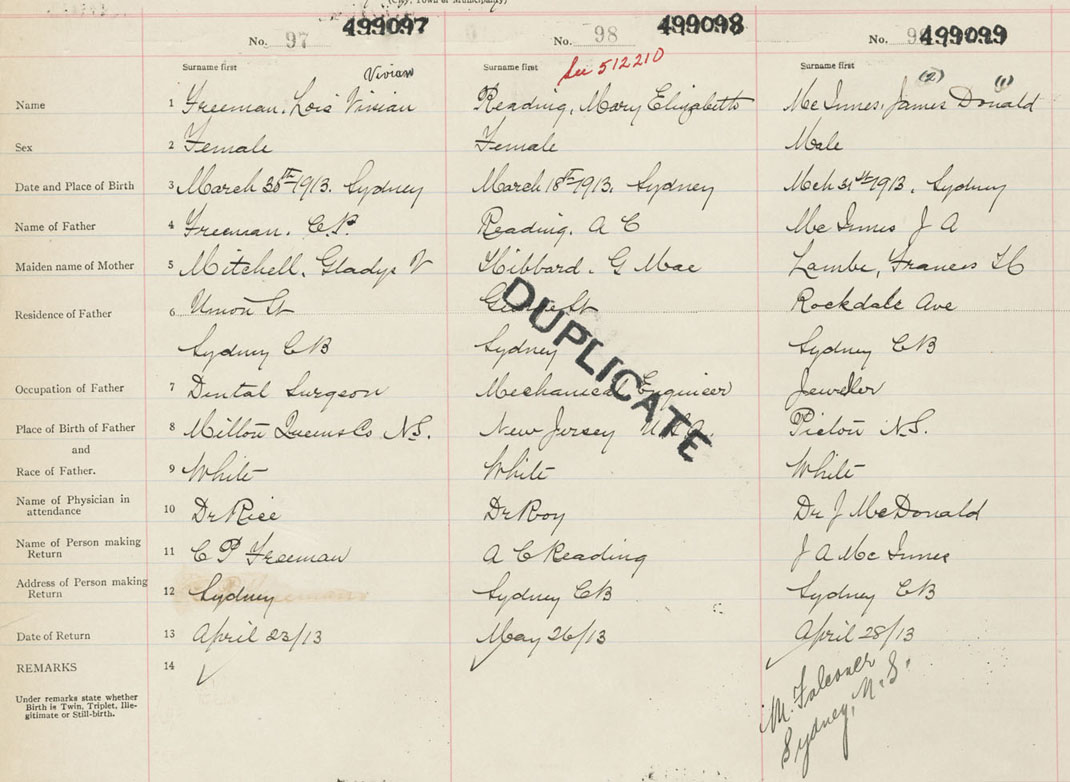 (City, Town or Municipality)
No. 97 499097
No. 98 499098
No. 499099
Surname first Vivian
Surname first See 512210
Surname first (2) (1)
Name 1 Freeman, Lois Vivian Reading, Mary Elizabeth Mc Innes, James Donald
Sex 2 Female Female Male
Date and Place of Birth 3 March 30th 1913. Sydney March 18th 1913. Sydney Mch 31st 1913, Sydney
Name of Father 4 Freeman. C.P. Reading, A C Mc Innes J A
Maiden name of Mother 5 Mitchell, Gladys V Hibbard. G Mae Lambe, Frances H
Residence of Father 6 Union St George St Rockdale Ave
Sydney CB Sydney Sydney CB
DUPLICATE
Occupation of Father 7 Dental Surgeon Mechanical Engineer Jeweller
Place of Birth of Father 8 Milton Queens Co. N.S. New Jersey U.S.A. Pictou N.S.
and
Race of Father. 9 White White White
Name of Physician in
attendance 10 Dr Rice Dr Roy Dr J McDonald
Name of Person making
Return 11 C P Freeman A C Reading J A Mc Innes
Address of Person making
Return 12 Sydney Sydney CB Sydney CB
Date of Return 13 April 23/13 May 26/13 April 28/13
REMARKS 14
M. Falconer
Sydney, N.S.
Under remarks state whether
Birth is Twin, Triplet, Ille-
gitimate or Still-birth.